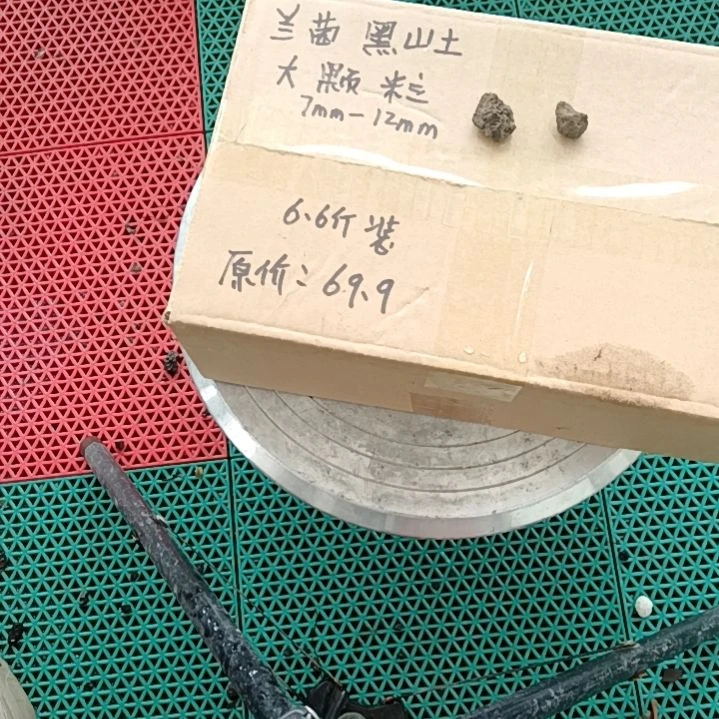 兰菌 黑山土
大颗粒
7mm-12mm
6.6斤装
原价:69.9